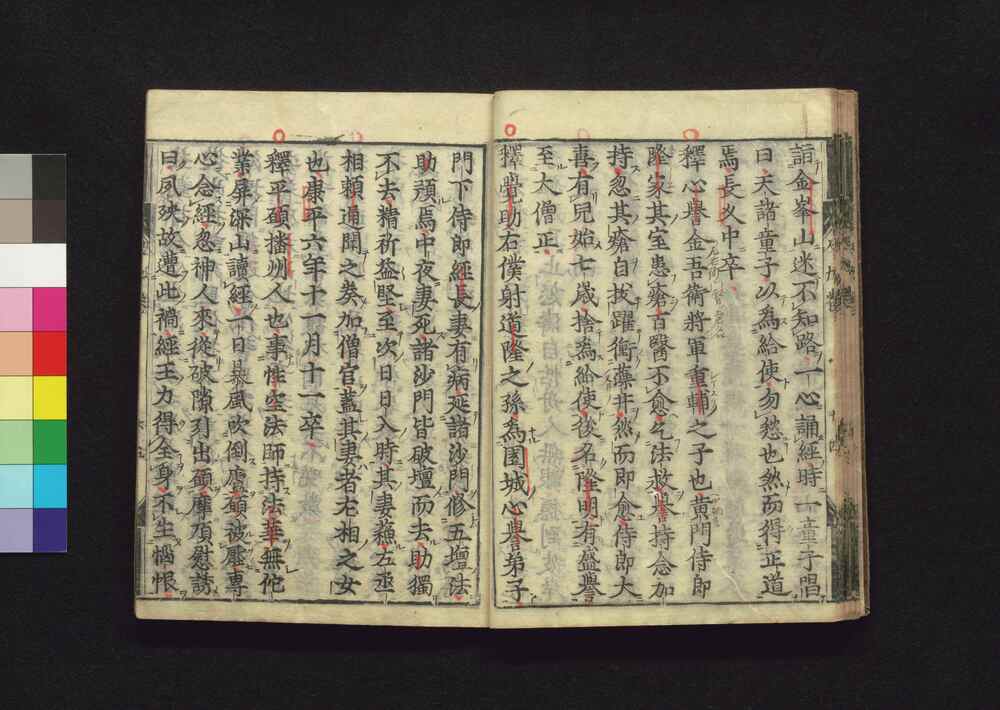 詣金峯山迷不知路一心誦經時一童子唱
曰天諸童子以為給使勿愁也然而得正道
焉長久中卒
釋心譽金吾衛將軍重輔之子也黄門侍郎
隆家其室患瘡百醫不愈乞法救譽持念加
持忽其瘡自拔躍衝藻井然而即愈侍郎大
喜有兒始七歳捨為給使後名隆明有盛譽
至大僧正
釋覺助右僕射道隆之孫為園城心譽弟子
門下侍郎經長妻有病延諸沙門修五壇法
助預焉中夜妻死諸沙門皆破壇而去助獨
不去精祈益堅至次日日入時其妻蘓右丞
相賴通聞之奏加僧官蓋其妻者右相之女
也康平六年十一月十一卒
釋平碩播州人也事性空法師持法華無佗
業屏深山讀經一日暴風吹倒廬碩被壓專
心念經忽神人來從破隙引出碩摩頂慰誘
曰夙殃故遭此禍經王力得全身不生惱恨